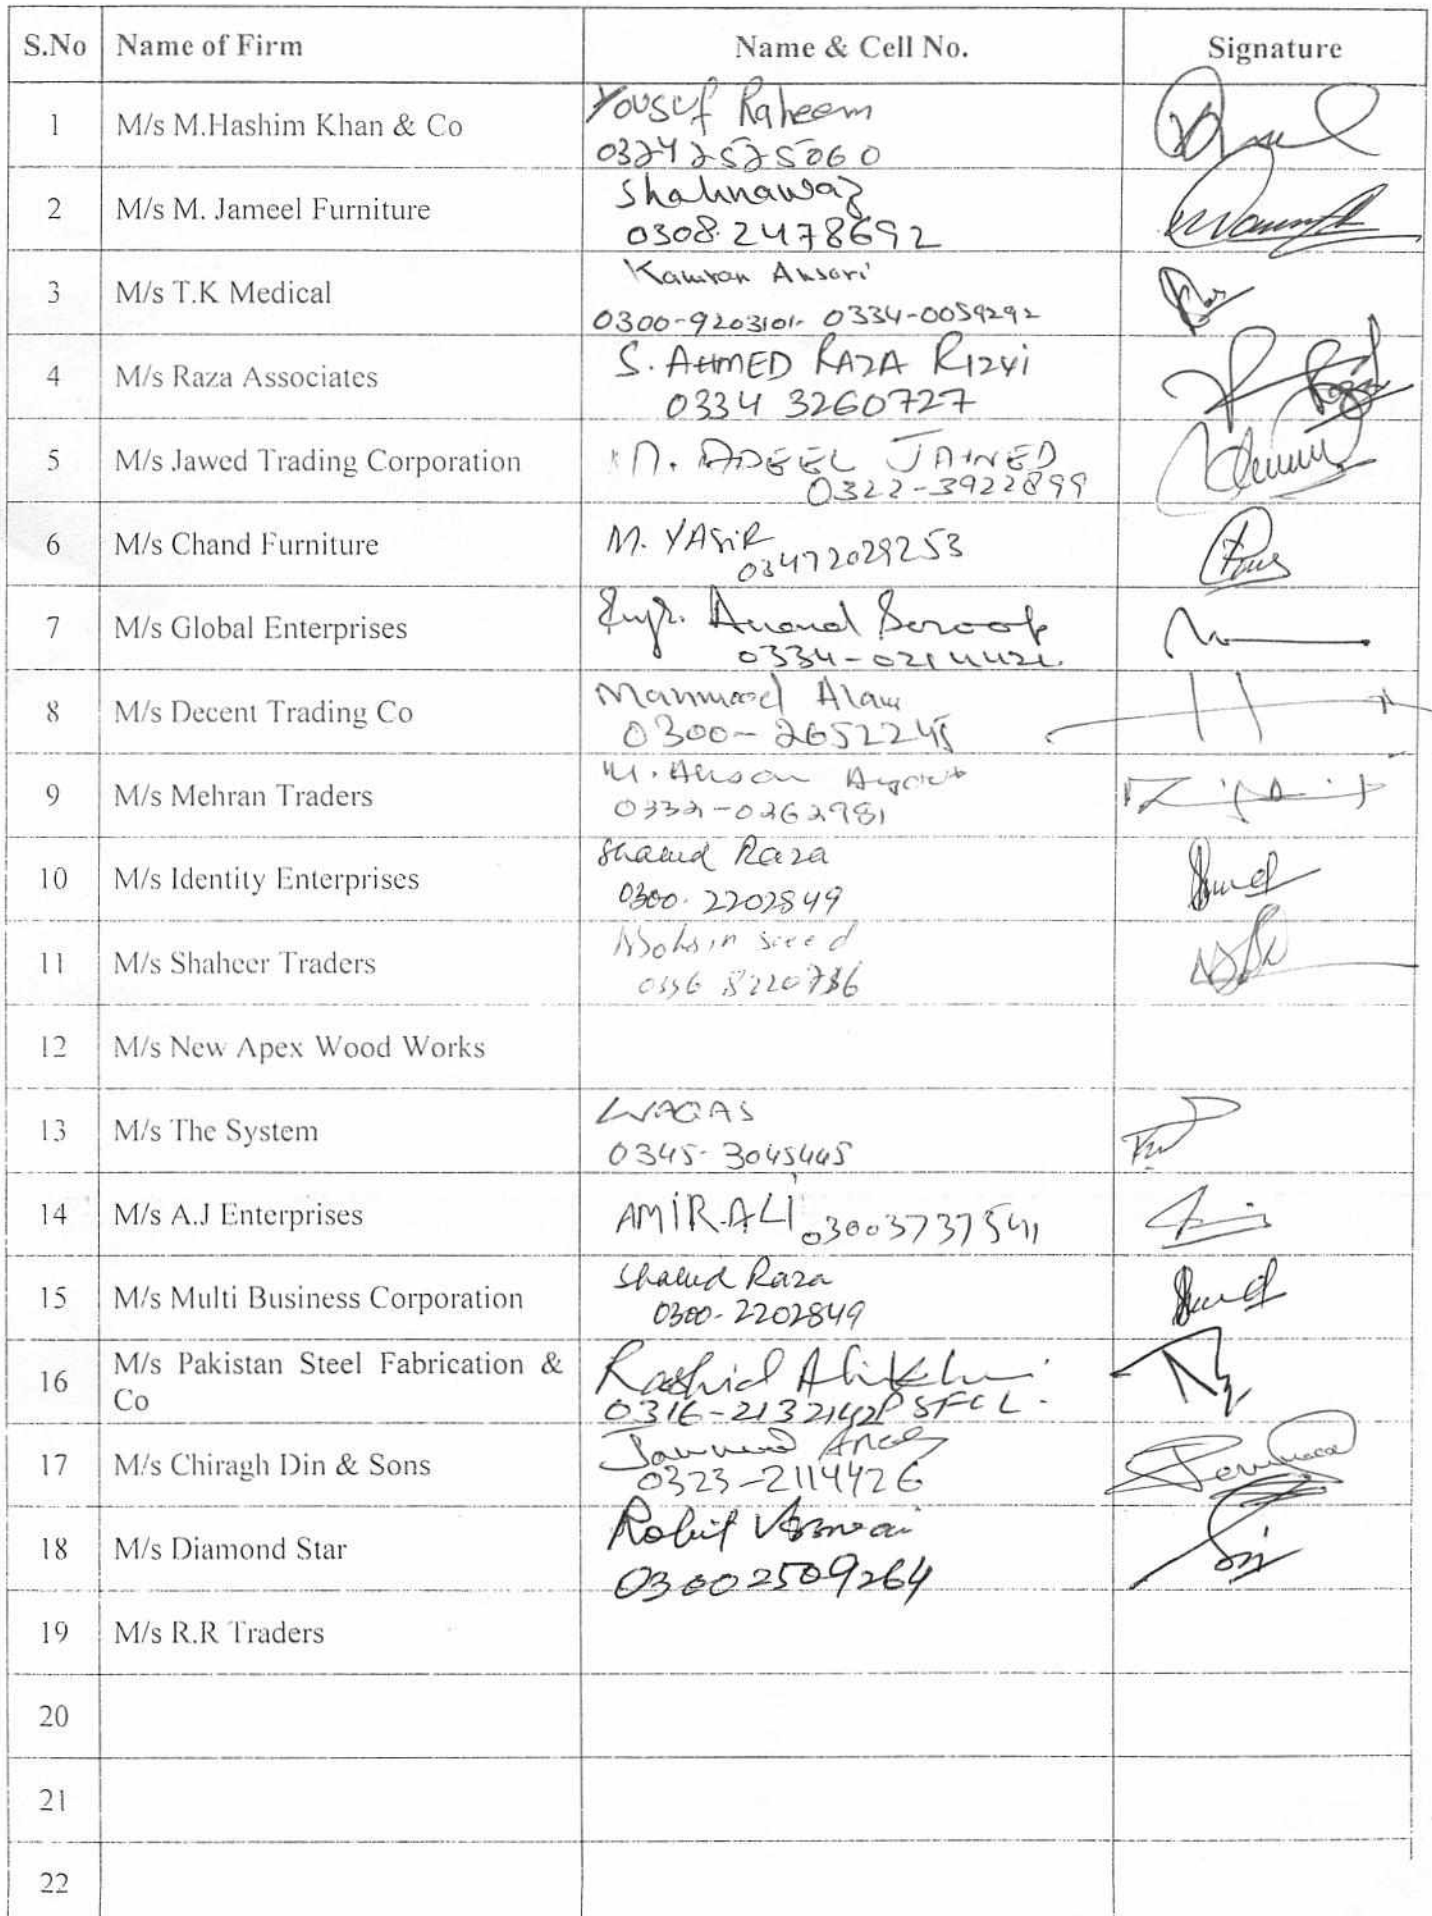 S.No Name of Firm Name & Cell No. Signature
1 M/s M.Hashim Khan & Co
Yousuf Raheem
03242525060
2 M/s M. Jameel Furniture
Shahnawaz
0308.2478692
3 M/s T.K Medical
Kamran Ansari
0300-9203101- 0334-0059292
4 M/s Raza Associates
S. AHMED RAZA RIZVI
0334 3260727
5 M/s Jawed Trading Corporation
M. ADEEL JAWED
0322-3922899
6 M/s Chand Furniture
M. YASIR
03472029253
7 M/s Global Enterprises
Engr. Anand Saroop
8 M/s Decent Trading Co
Mahmood Alam
0300-2652245
9 M/s Mehran Traders
M. Ahsan
0332-0262981
10 M/s Identity Enterprises
Shahid Raza
0300.2202849
11 M/s Shaheer Traders
Mohsin Saeed
12 M/s New Apex Wood Works
13 M/s The System
WAQAS
0345-3045445
14 M/s A.J Enterprises
AMIR.ALI 03003737541
15 M/s Multi Business Corporation
Shahid Raza
0300-2202849
16 M/s Pakistan Steel Fabrication &
Co
Rashid Ali Khan
0316-2132142 PSFCL.
17 M/s Chiragh Din & Sons
0323-2114426
18 M/s Diamond Star
03002509264
19 M/s R.R Traders
20
21
22